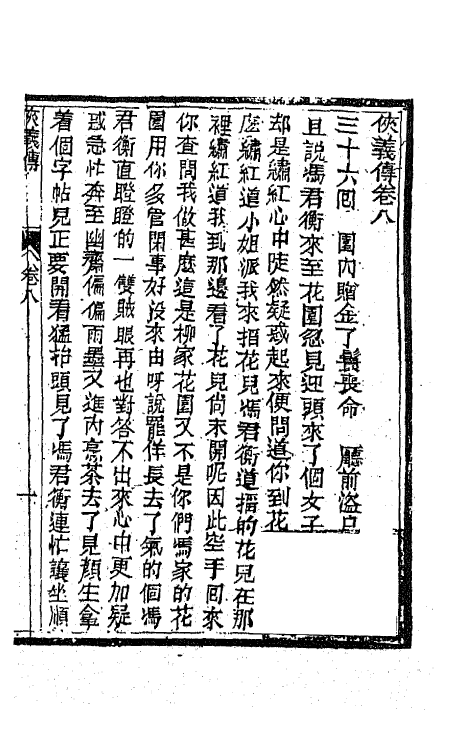 俠義傳卷八
三十六囘　園內贈金丫鬟喪命　廳前盜尸
且說馮君衡來至花園忽見迎頭來了個女子
却是繡紅心中陡然疑惑起來便問道你到花
園繡紅道小姐派我來掐花兒馮君衡道掐的花兒在那
裡繡紅道我到那邊看了花兒尚未開呢因此空手回來
你查問我做甚麼這是柳家花園又不是你們馮家的花
園用你多管閑事好沒來由呀說罷佯長去了氣的個馮
君衡直瞪瞪的一雙賊眼再也對答不出來心中更加疑
惑急忙奔至幽齋偏偏雨墨又進內烹茶去了見顏生拿
着個字帖兒正要開看猛抬頭見了馮君衡連忙讓坐順
俠義傳　卷八　一